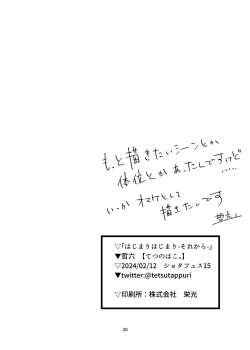 もっと描きたいシーンとか
体位とかあったんですけど
.....
いつかオマケとして
描きたいです
哲六
▽『はじまりはじまり-それから-』
▼哲六 【てつのはこ。】
▽2024/02/12 ショタフェス15
▼twitter:@tetsutappuri
▽印刷所：株式会社 栄光